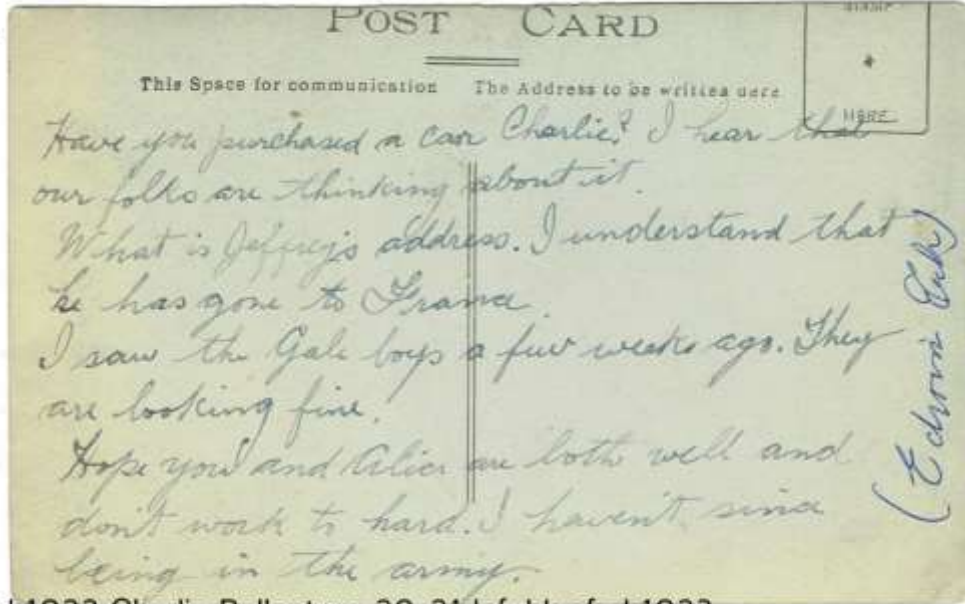 POST CARD
STAMP
HERE
This Space for communication
The Address to be written here
Have you purchased a car Charlie? I hear that
our folks are thinking about it.
What is Jeffrey's address. I understand that
he has gone to France.
I saw the Gale boys a few weeks ago. They
are looking fine.
Hope you and Alice are both well and
don't work to hard. I haven't since
being in the army.
(Edwin